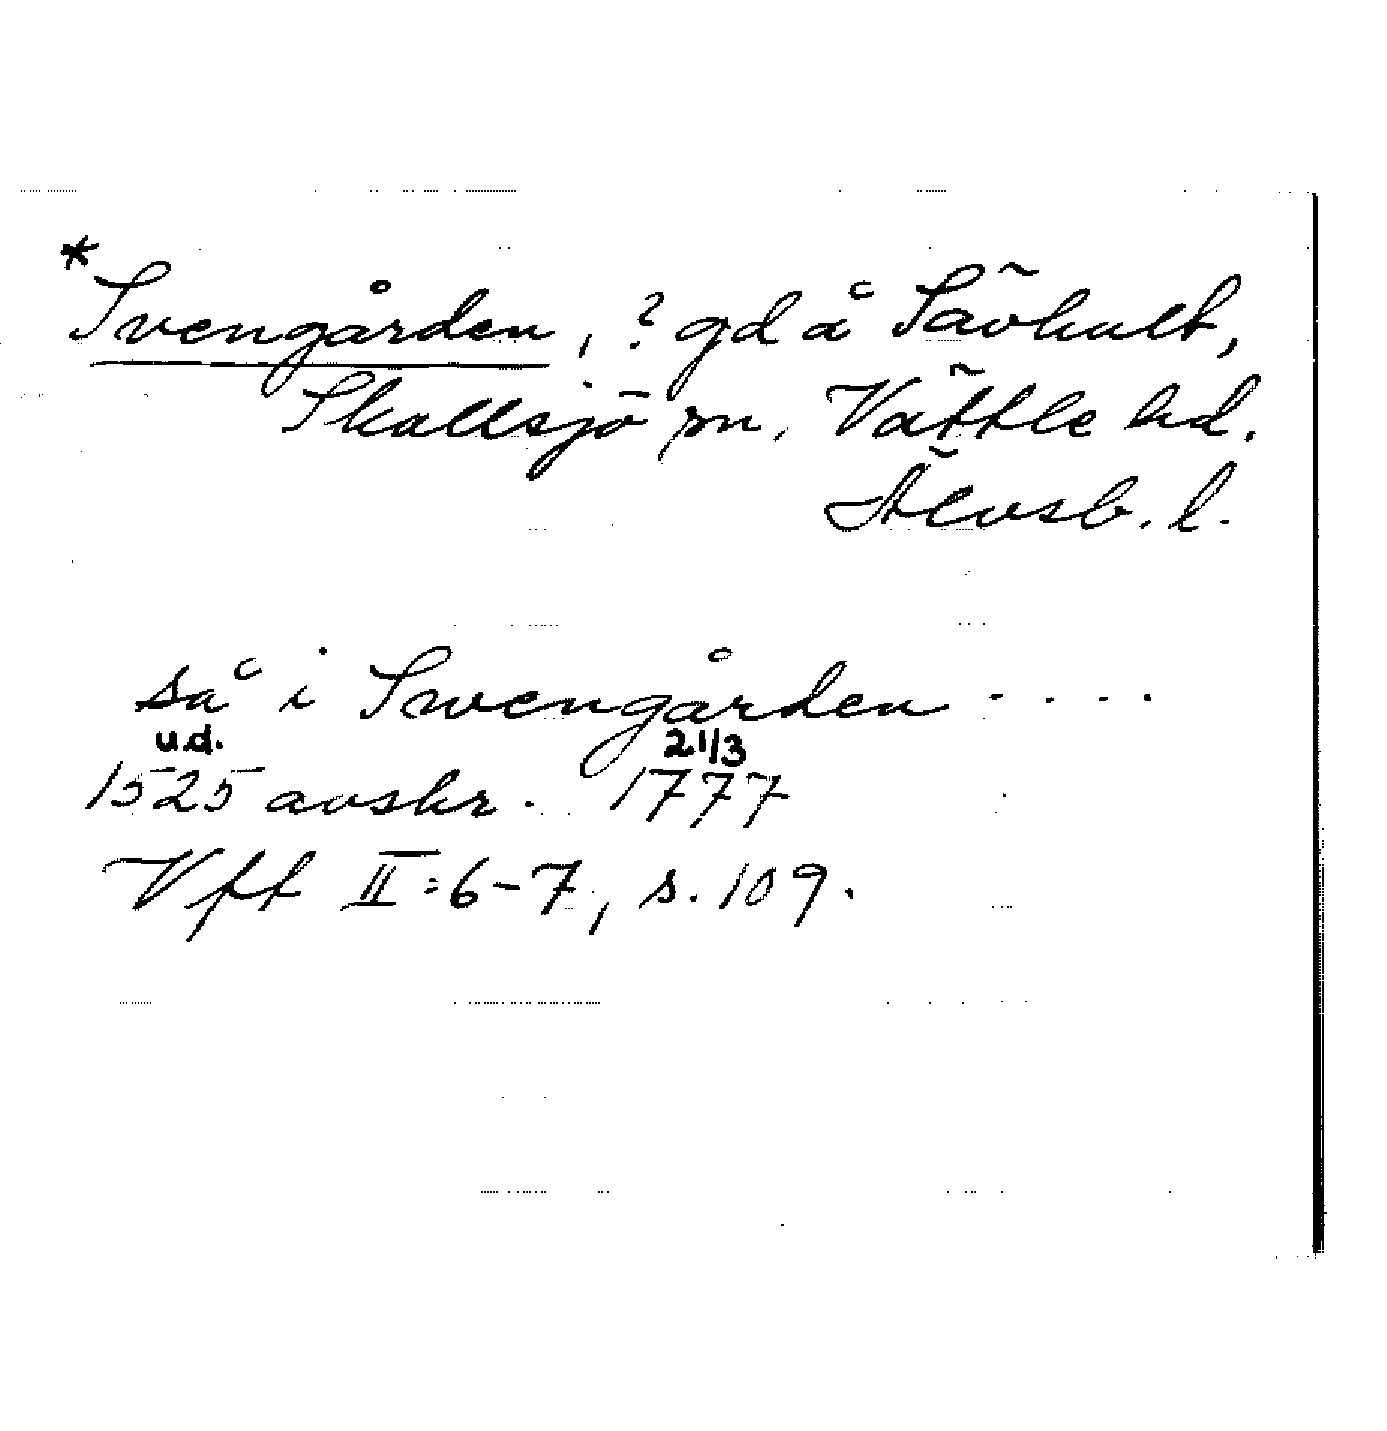 *
Svengården, ? gd å Sävhult,
Skallsjö sn, Vättle hd.
Älvsb. l.
så i Swengården . . . .
u.d. 21/3
1525 avskr. 1777
Vft II:6-7, s. 109.